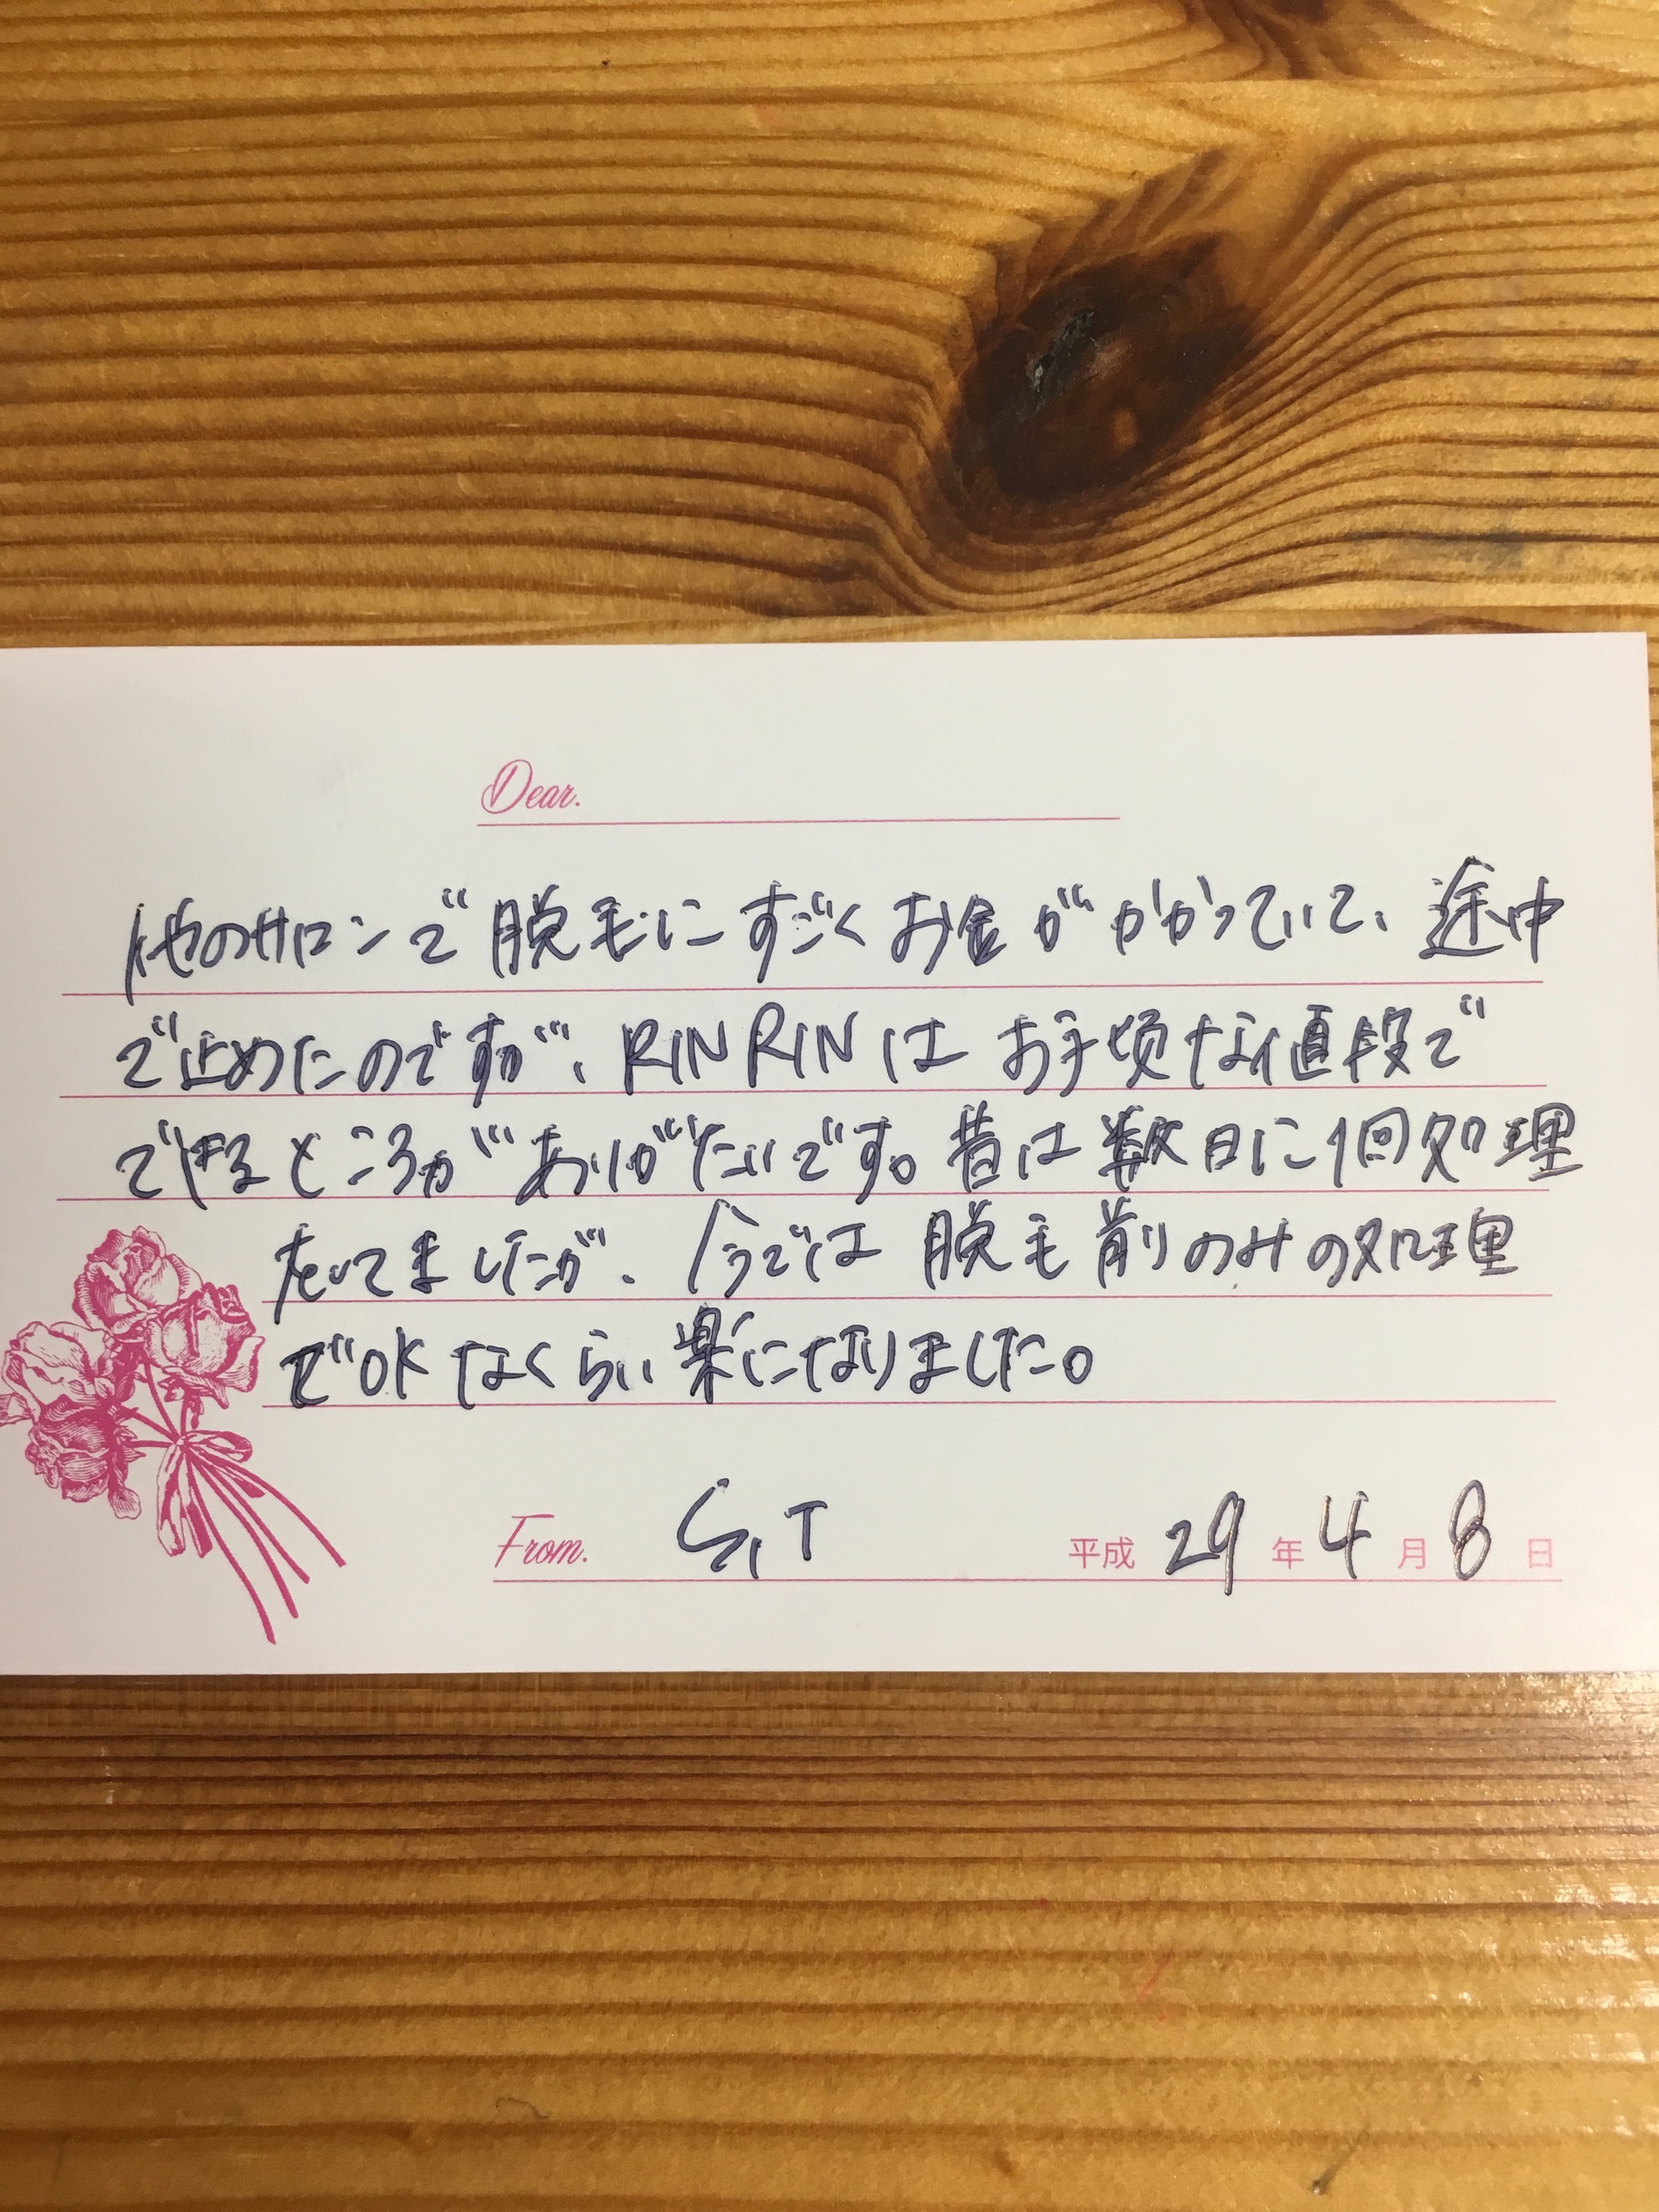 Dear.
他のサロンで脱毛にすごくお金がかかっていて、途中
で止めたのですが、RINRINはお手頃な値段で
できるところがありがたいです。昔は数日に1回処理
をしてましたが、今では脱毛前のみの処理
でOKなくらい楽になりました。
From. S,T 平成 29 年 4 月 8 日